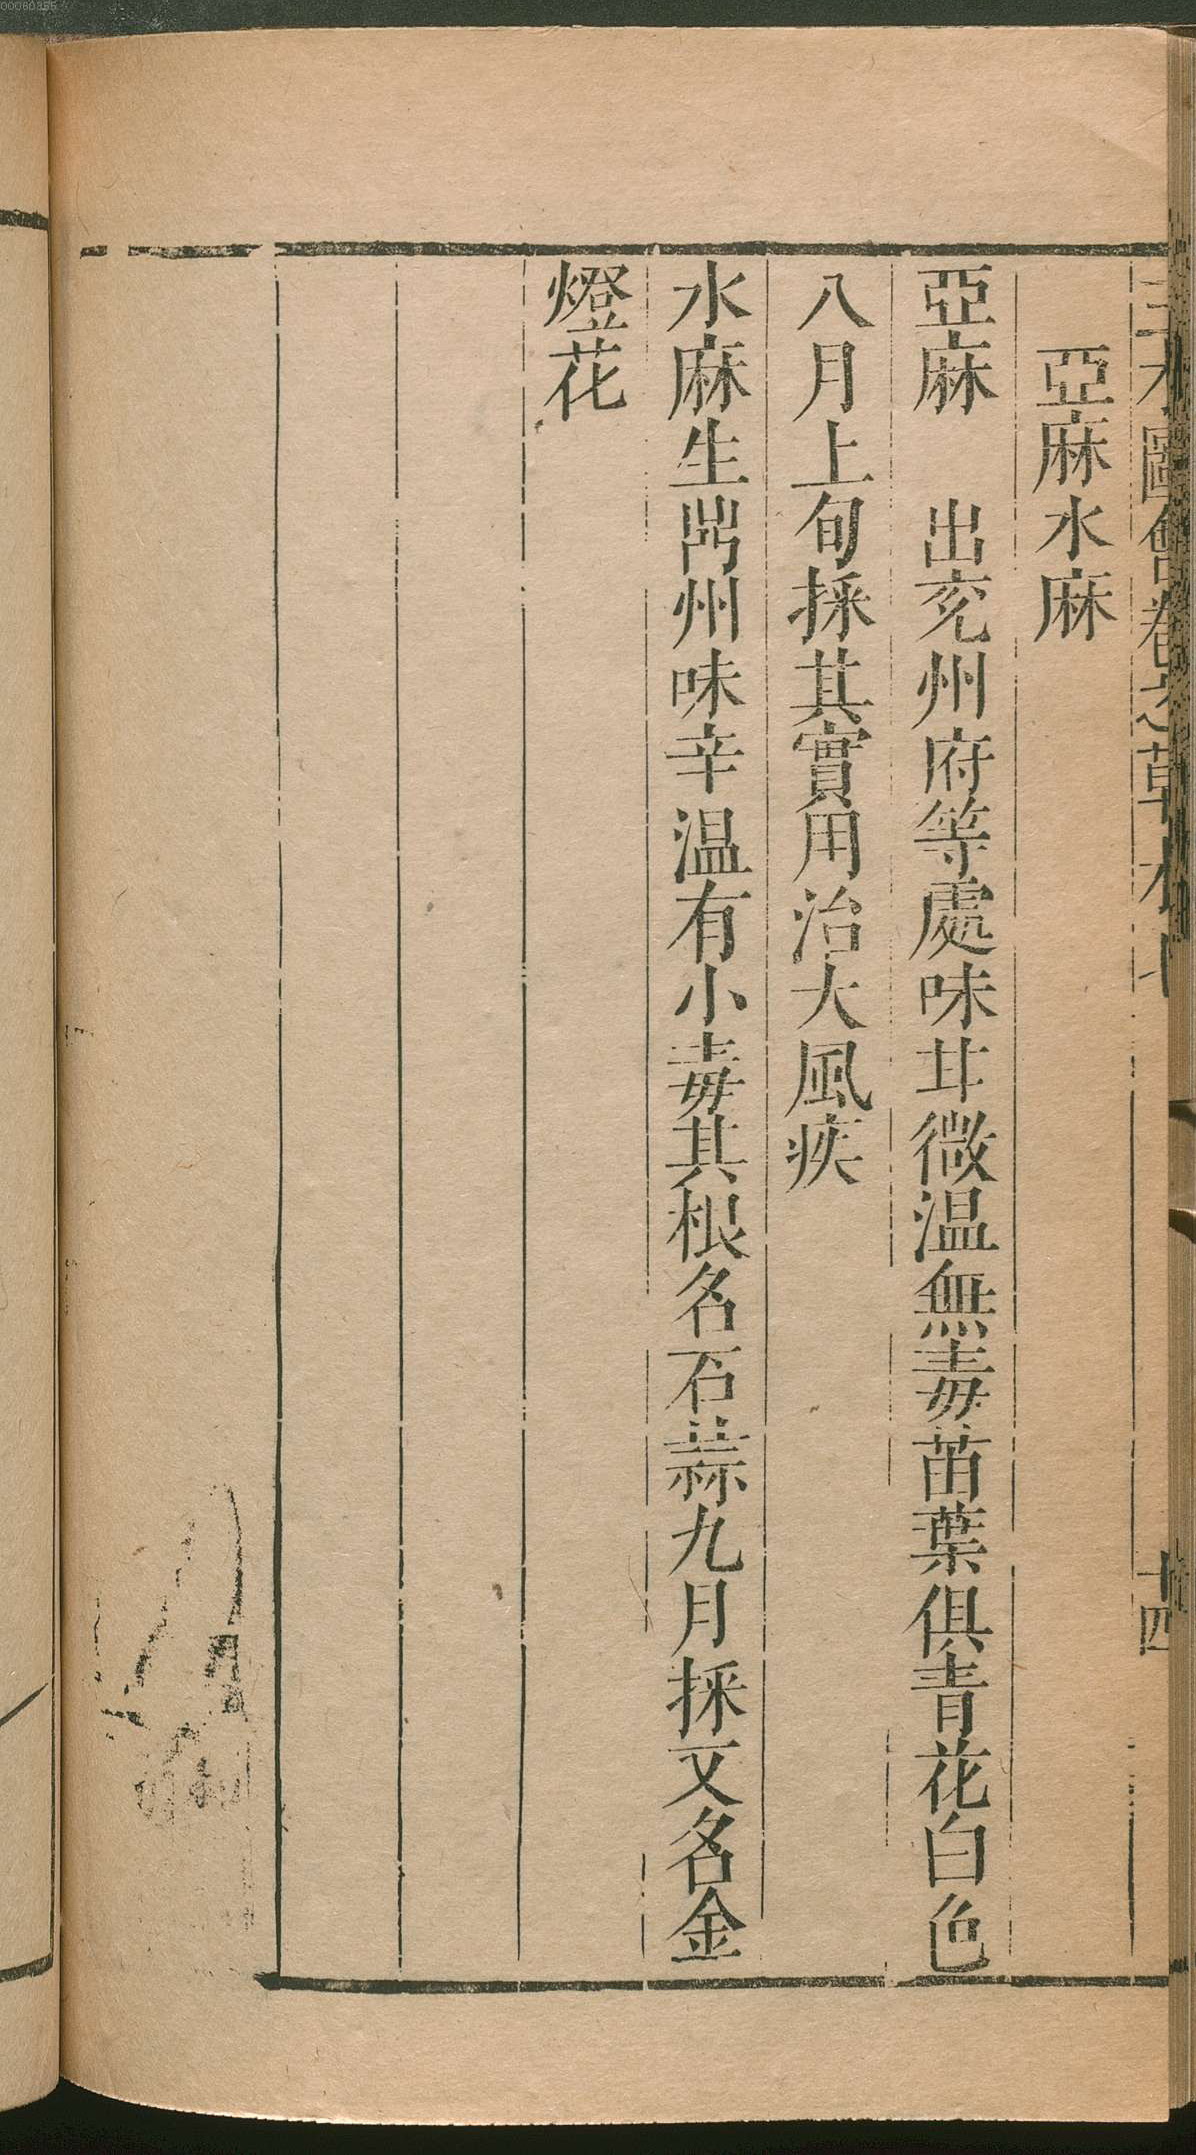 亞麻水麻
亞麻　出兖州府等處味甘微温無毒苗葉俱青花白色
八月上旬採其實用治大風疾
水麻生鼎州味辛温有小毒其根名石蒜九月採又名金
燈花
十四
00060355